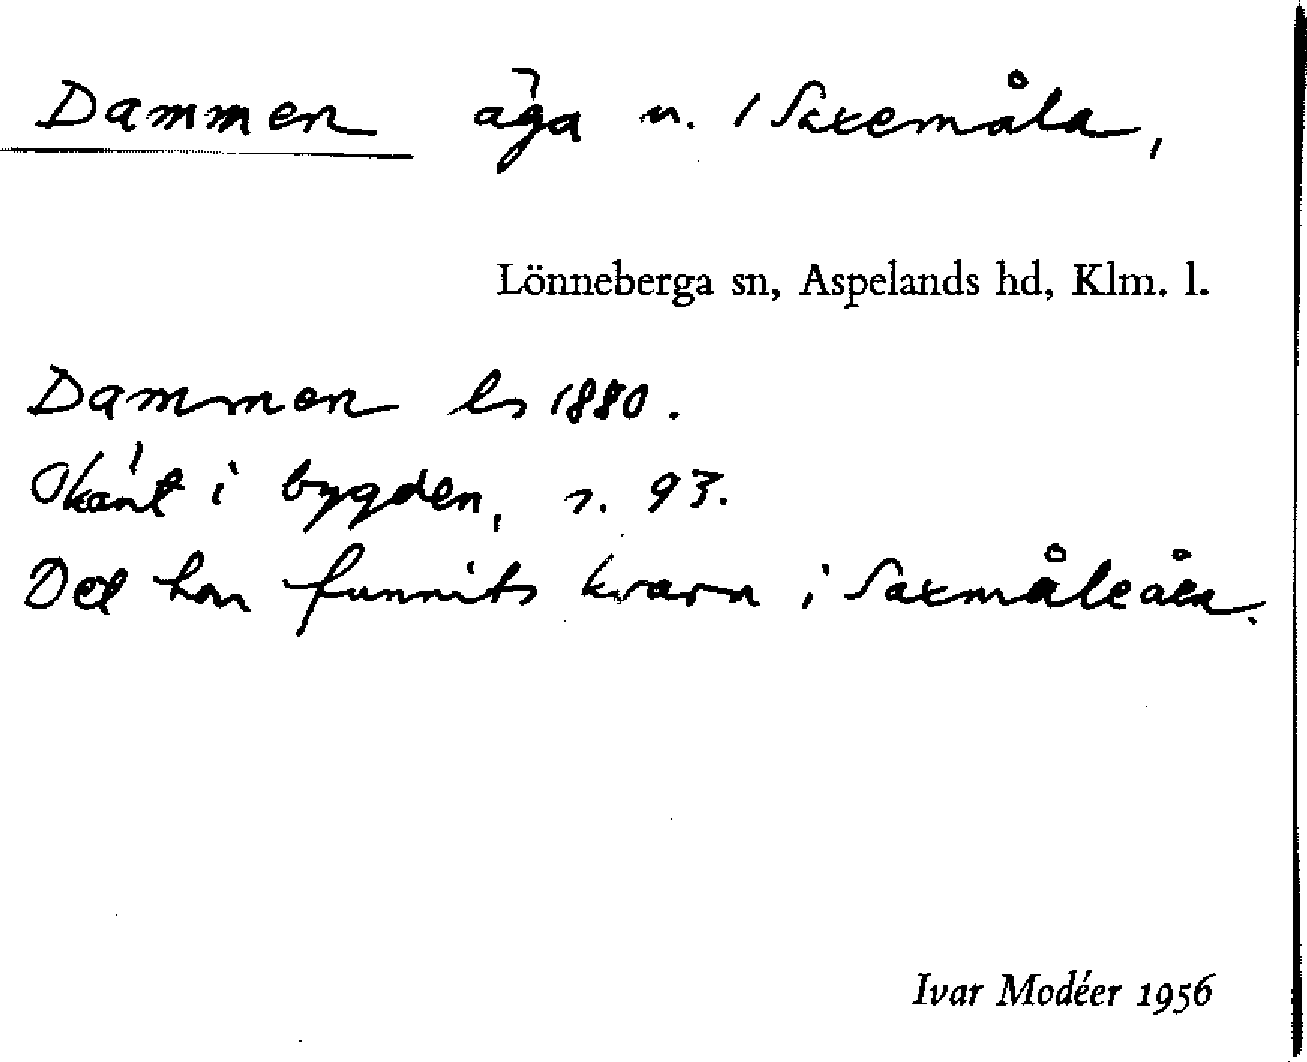 Dammen äga u. / Saxemåla,
Lönneberga sn, Aspelands hd, Klm. l.
Dammen ls 1880.
Okänt i bygden, s. 93.
Det har funnits kvarn i Saxmåleåen.
Ivar Modéer 1956